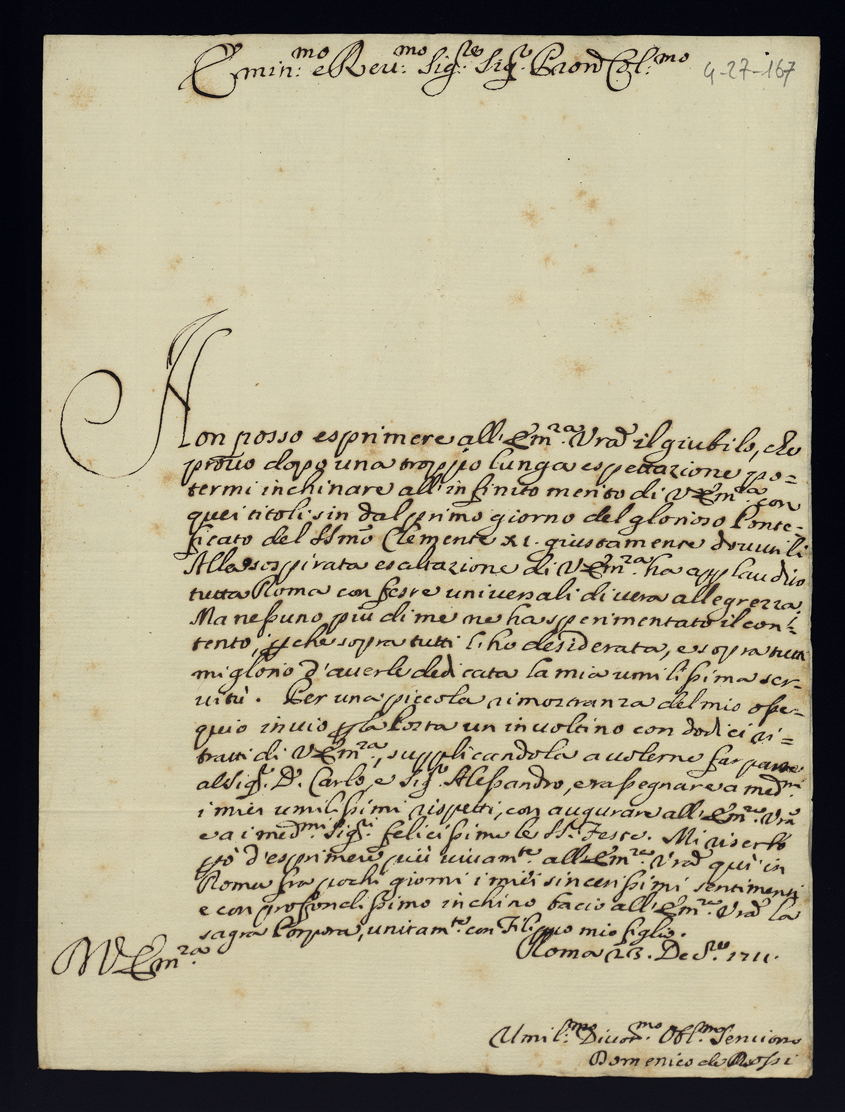 Emin:mo e Reu:mo Sig:re Sig:re Pron Col:mo
4-27-167
Non posso esprimere all'Em:za Vra il giubilo, che
prouo dopo una troppo lunga espettazione po=
termi inchinare all'infinito merito di V Em:za con
quei titoli sin dal primo giorno del glorioso Ponte=
ficato del SSmo Clemente XI. giustamente douutili
Alla sospirata esaltazione di V Em:za ha applaudito
tutta Roma con feste uniuersali di uera allegrezza,
Ma nessuno più di me ne ha sperimentato il con=
tento, pche sopra tutti li ho desiderata, e sopra tutti
mi glorio d'auerle dedicata la mia umilissima ser=
uitù. Per una piccola rimostranza del mio osse=
quio inuio p la Posta un inuoltino con dodici ri=
tratti di V Em:za, supplicandola a uolerne far parte
al Sig:r D. Carlo, e Sig:r Alessandro, e rassegnare a med:mi
i miei umilissimi rispetti, con augurare all'Em:za Vra
e a i med:mi Sig:ri felicissime le SS.e Feste. Mi riserbo
pò d'esprimere più uiuam:te all'Em:za Vra quì in
Roma fra pochi giorni i miei sincerissimi sentimenti
e con profondissimo inchino bacio all'Em:za Vra la
sagra Porpora, unitam:te con Filippo mio figlio.
Roma 23. De S:re 1711.
V Em:za
Umil:mo Diuot:mo Obl:mo Seruitore
Domenico de Rossi